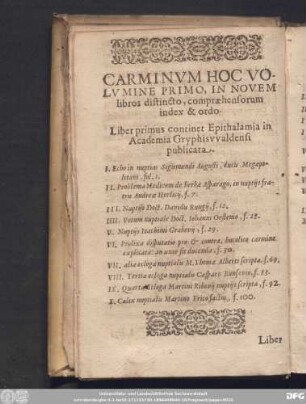 CARMINVM HOC VO-
LVMINE PRIMO, IN NOVEM
libros distincto, compræhensorum
index & ordo.
Liber primus continet Epithalamia in
Academia Gryphisvvaldensi
publicata.
I. Echo in nuptias Sigismundi Augusti, Ducis Megapo-
litani, fol. 1.
II. Problema Medicum de herba Asparago, in nuptijs fra-
tris Andreæ Herlicij, f. 7.
III. Nuptijs Doct. Danielis Rungij, f. 12.
IIII. Votum nuptiale Doct. Iohanni
V. Nuptijs Ioachimi f. 29.
VI. Prolixa disputatio pro & contra, bucolico carmine
explicata: an uxor sit ducenda, f. 30.
VII. alia ecloga nuptialis M. Thomæ Alberti scripta, f. 69.
VIII. Tertia ecloga nuptialis Casparo f.
IX. Quarta Ecloga Martini nuptijs scripta, f. 92.
X. Culex nuptialis Martino f. 100.
Liber